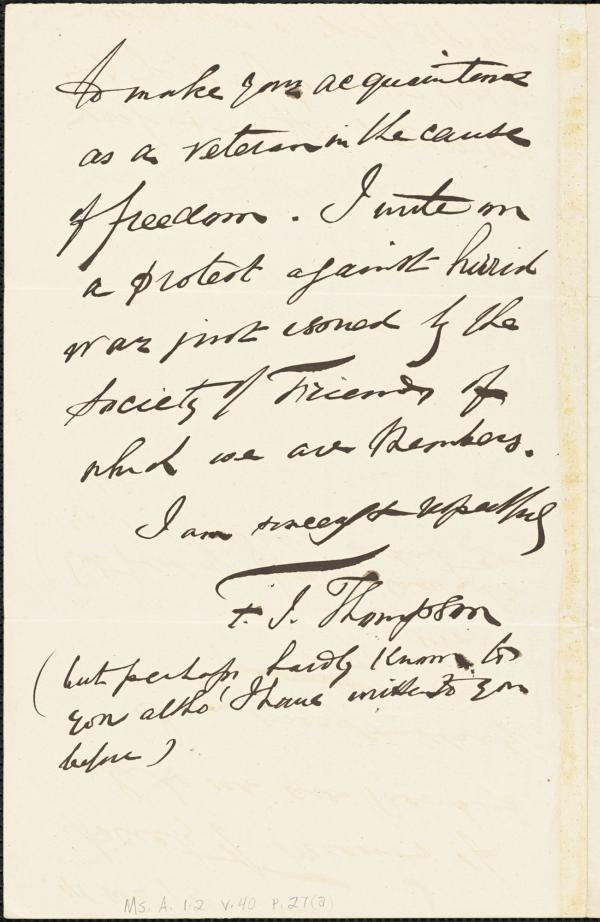 to make your acquaintance
as a veteran in the cause
of freedom. I write on
a protest against horrid
war just issued by the
Society of Friends of
which we are Members.
I am sincerely & respectfully
F. J. Thompson
(but perhaps hardly known to
you altho' I have written to you
before)
Ms. A. 1.2 v.40 p.27(a)